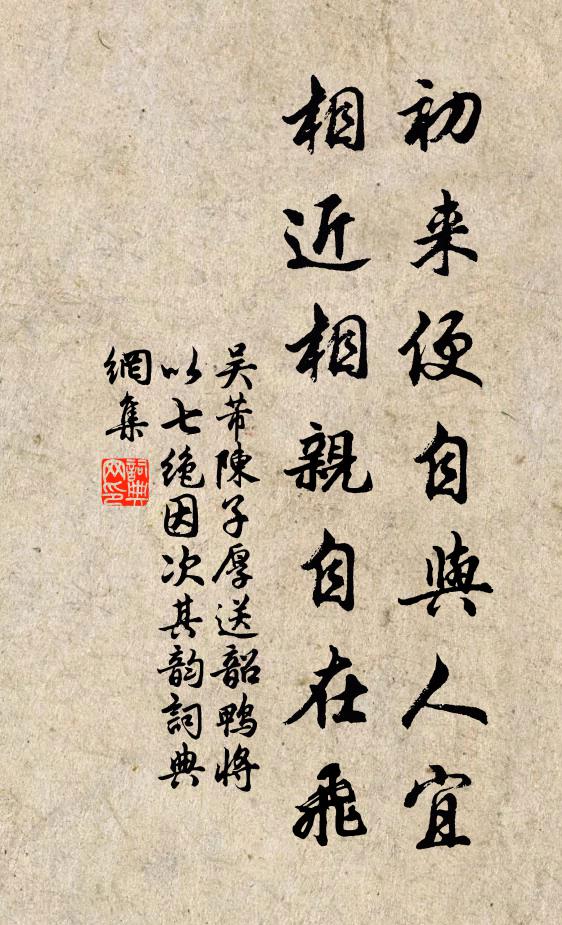 初来便自與人宜
相近相親自在飛
吴芾陳子厚送韶鴨將
以七绝因次其韵詞典
網集
詞典網印